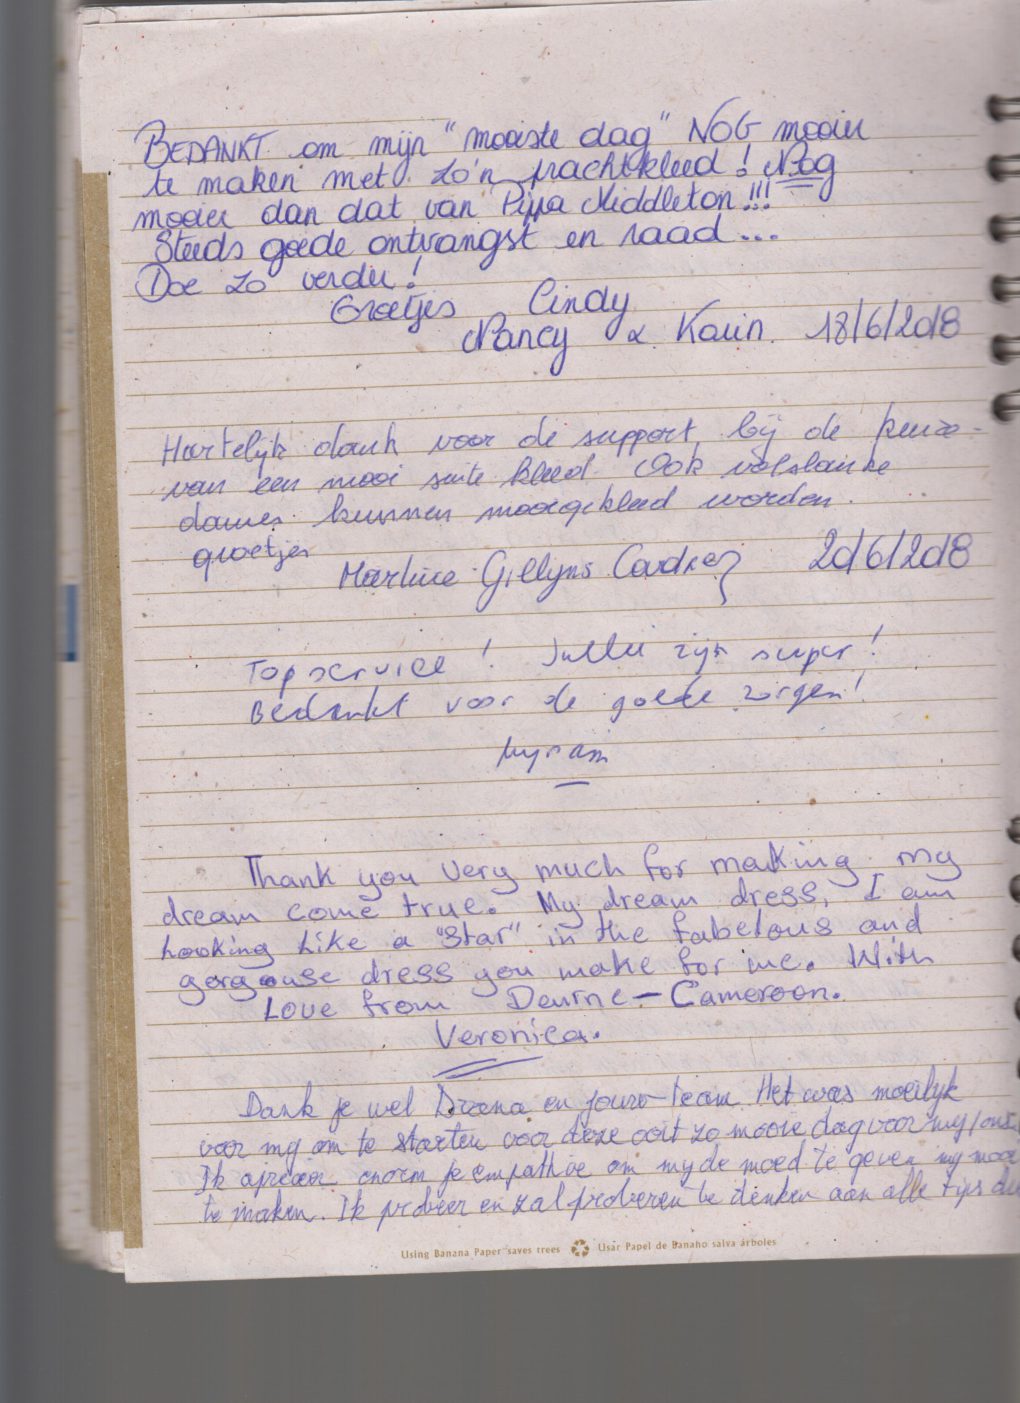 BEDANKT om mijn "mooiste dag" NOG mooier
te maken met zo'n prachtkleed! Nog
mooier dan dat van Pippa Middleton!!!
Steeds goede ontvangst en raad...
Doe zo verder!
Groetjes Cindy
Nancy & Karin. 18/6/2018
Hartelijk dank voor de support, bij de keuze
van een mooi suite kleed. Ook volslanke
dames kunnen mooi gekleed worden.
groetjes
Martine Gillyns 20/6/2018
Top service! Jullie zijn super!
Bedankt voor de goede zorgen!
Myriam
Thank you very much for making my
dream come true. My dream dress, I am
Looking Like a "Star" in the fabelous and
gorgouse dress you make for me. With
Love from Deurne - Cameroon.
Veronica.
Dank je wel en jouw team. Het was moeilyk
voor my om te starten voor deze ooit zo mooie dag voor my
Ik enorm je empathie om my de moed te geven my mooi
te maken. Ik probeer en zal proberen te denken aan alle tips
Using Banana Paper saves trees Usar Papel de Banano salva árboles